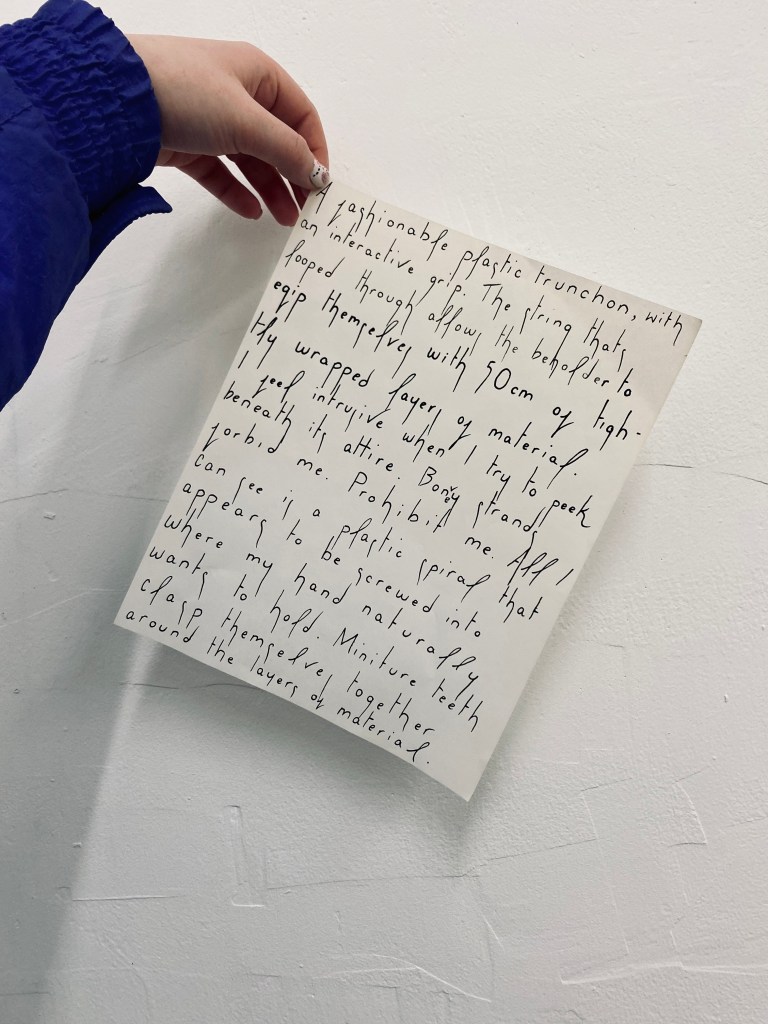 A fashionable plastic trunchon, with
an interactive grip. The string thats
looped through allows the beholder to
eqip themselves with 50cm of tigh-
tly wrapped layers of material.
I feel intrusive when I try to peek
beneath its attire. Boney strands
forbid me. Prohibit me. All I
can see is a plastic spiral that
appears to be screwed into
where my hand naturally
wants to hold. Miniture teeth
clasp themselves together
around the layers of material.